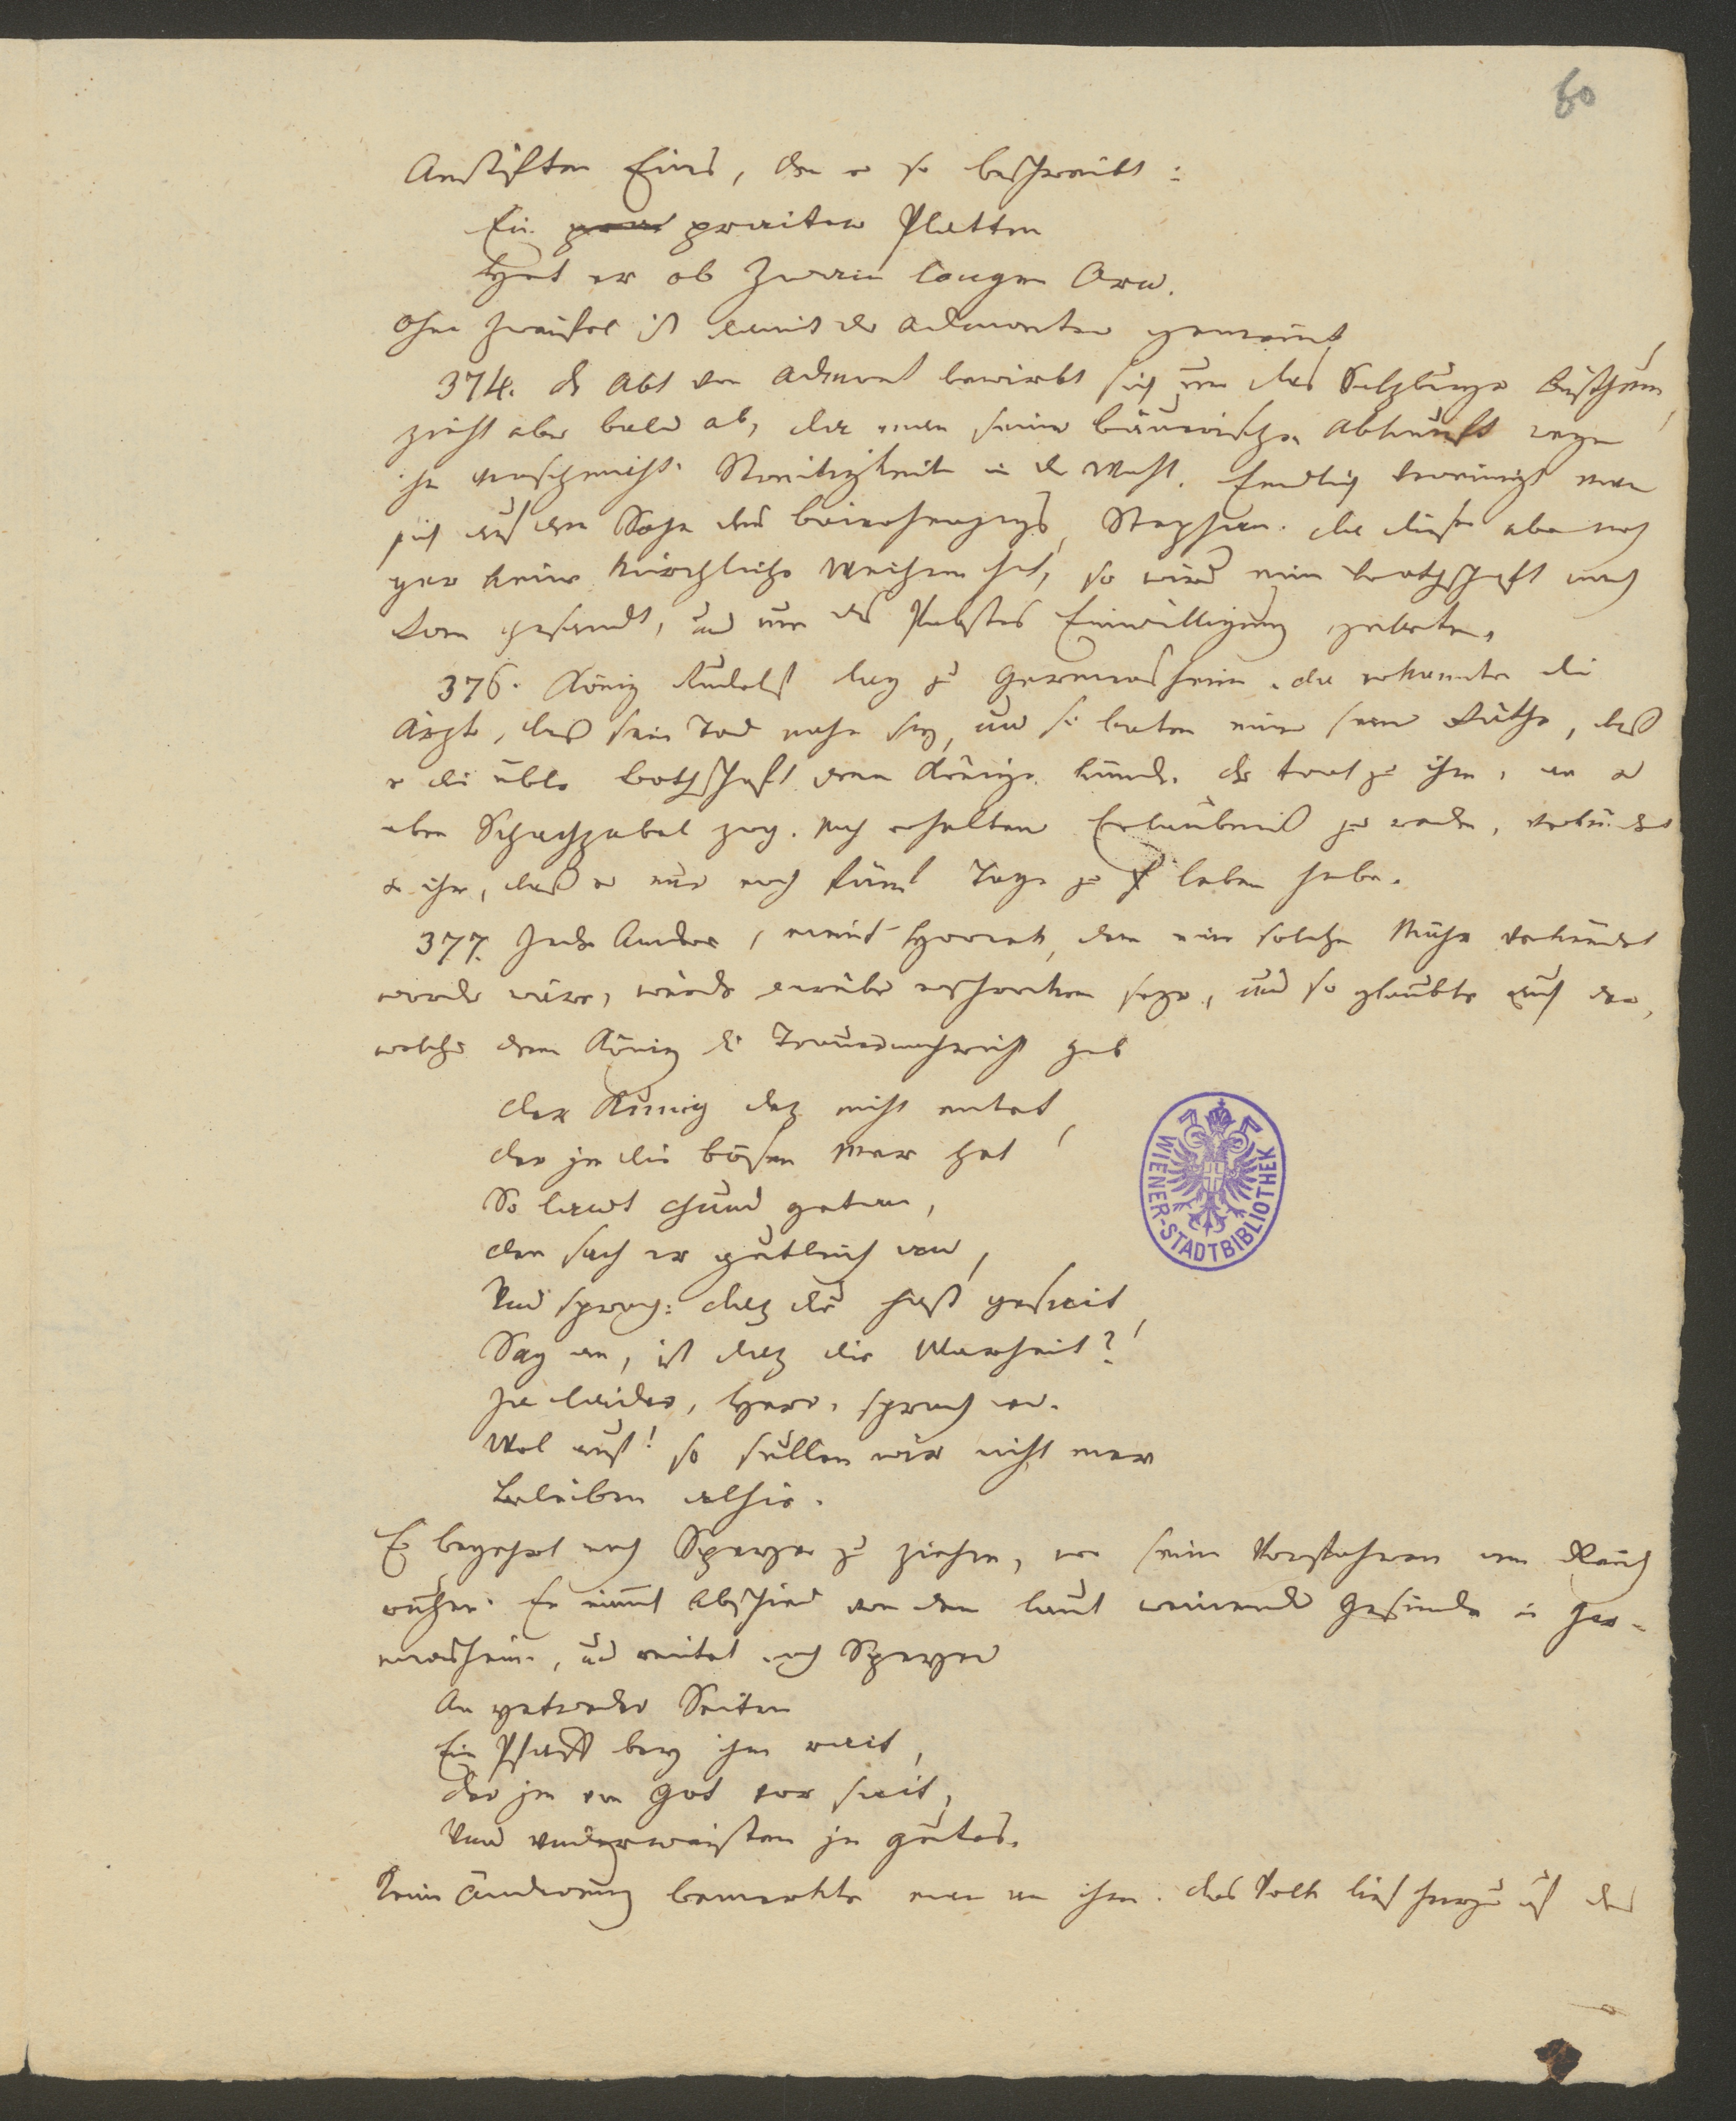 60
Anstiften Eines, den er so beschreibt:
Ein praiten Platten
Het er ob zwain langen Orn.
Ohne Zweifel ist damit der Admonter gemeint
374. Der Abt von Admont bewirbt sich um das Salzburger Bisthum,
zieht aber bald ab, da man seiner bäurischen Abkunft wegen
ihn verschmäht. Streitigkeiten in der Wahl. Endlich vereinigt man
sich auf den Sohn des Baierherzogs, Stephan. Da dieser aber noch
gar keine kirchliche Weihen hat, so wird eine Bothschaft nach
Rom gesandt, und um des Pabstes Einwilligung gebeten.
376. König Rudolf lag zu Germersheim. Da erkannten die
Ärzte, daß sein Tod nahe sey, und sie baten einen seiner Räthe, daß
er die üble Bothschaft dem Könige künde. Der trat zu ihm, wo er
eben Schachzabel zog. Nach erhaltener Erlaubniß zu reden, verkündet
er ihm, daß er nur noch fünf Tage zu leben habe.
377. Jeder Andere, meint Horneck, dem eine solche Mähr verkündet
worden wäre, würde darüber erschrocken seyn, und so glaubte auch der,
welcher dem König die Trauernachricht gab
Der Kunig des nicht entet,
Der jm die bösen Mer het
So laut chund getan,
Den sach er gutleich an,
Und sprach: daz du hast geseit,
Sag an, ist daz die Warheit?
Ja laider, Herr, sprach er.
Wol auf! so sullen wir nicht mer
Beleiben alhie.
Er begehrt nach Speyer zu ziehen, wo seine Vorfahren am Reich
ruhen. Er nimmt Abschied von dem laut weinenden Gesinde in Ger-
mersheim, und reitet nach Speyer
An yetweder Seiten
Ein Pfaff bey jm rait,
Der jm von Got vor sait,
Und underweisten jn gutes.
Keine Änderung bemerkte man an ihm. Das Volk lief herzu auf der
WIENER-STADTBIBLIOTHEK